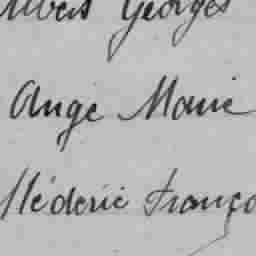 Georges
Ange Marie
Médéric Franço